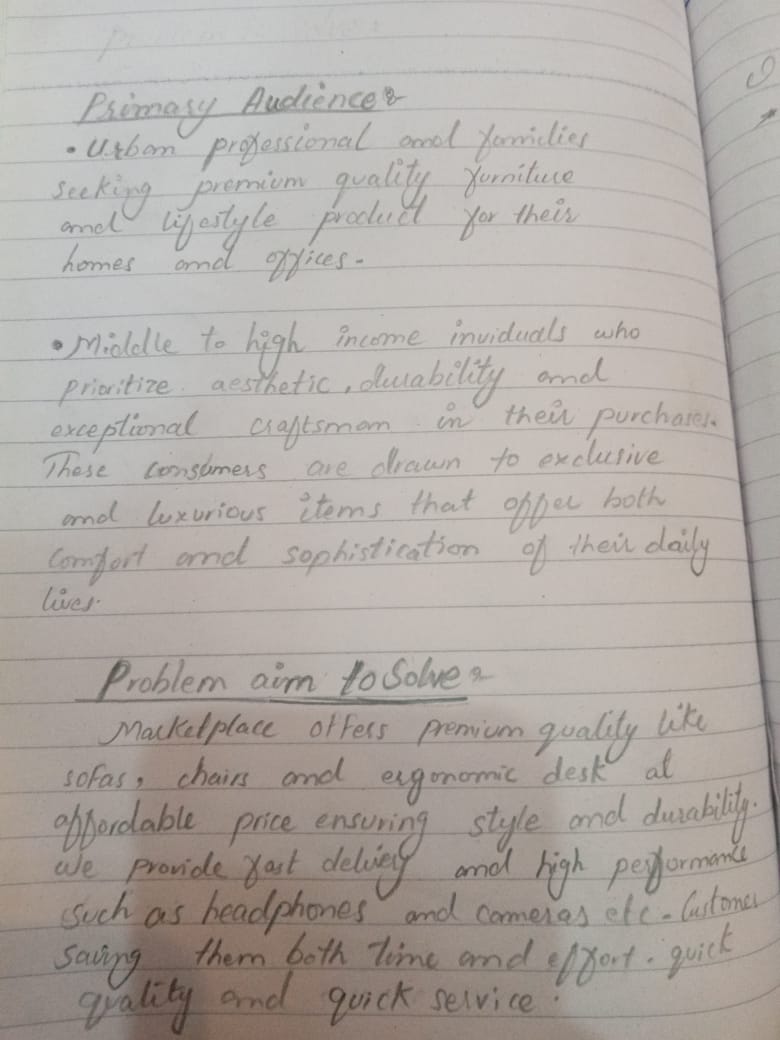 Primary Audience:
• Urban professional and families
seeking premium quality furniture
and lifestyle product for their
homes and offices.
• Middle to high income inviduals who
prioritize aesthetic, durability and
exceptional craftsman in their purchases.
These consumers are drawn to exclusive
and luxurious items that offer both
comfort and sophistication of their daily
lives.
Problem aim to Solve:
Marketplace offers premium quality like
sofas, chairs and ergonomic desk at
affordable price ensuring style and durability.
We provide fast delivery and high performance
such as headphones and cameras etc. Customer
saving them both time and effort. quick
quality and quick service.